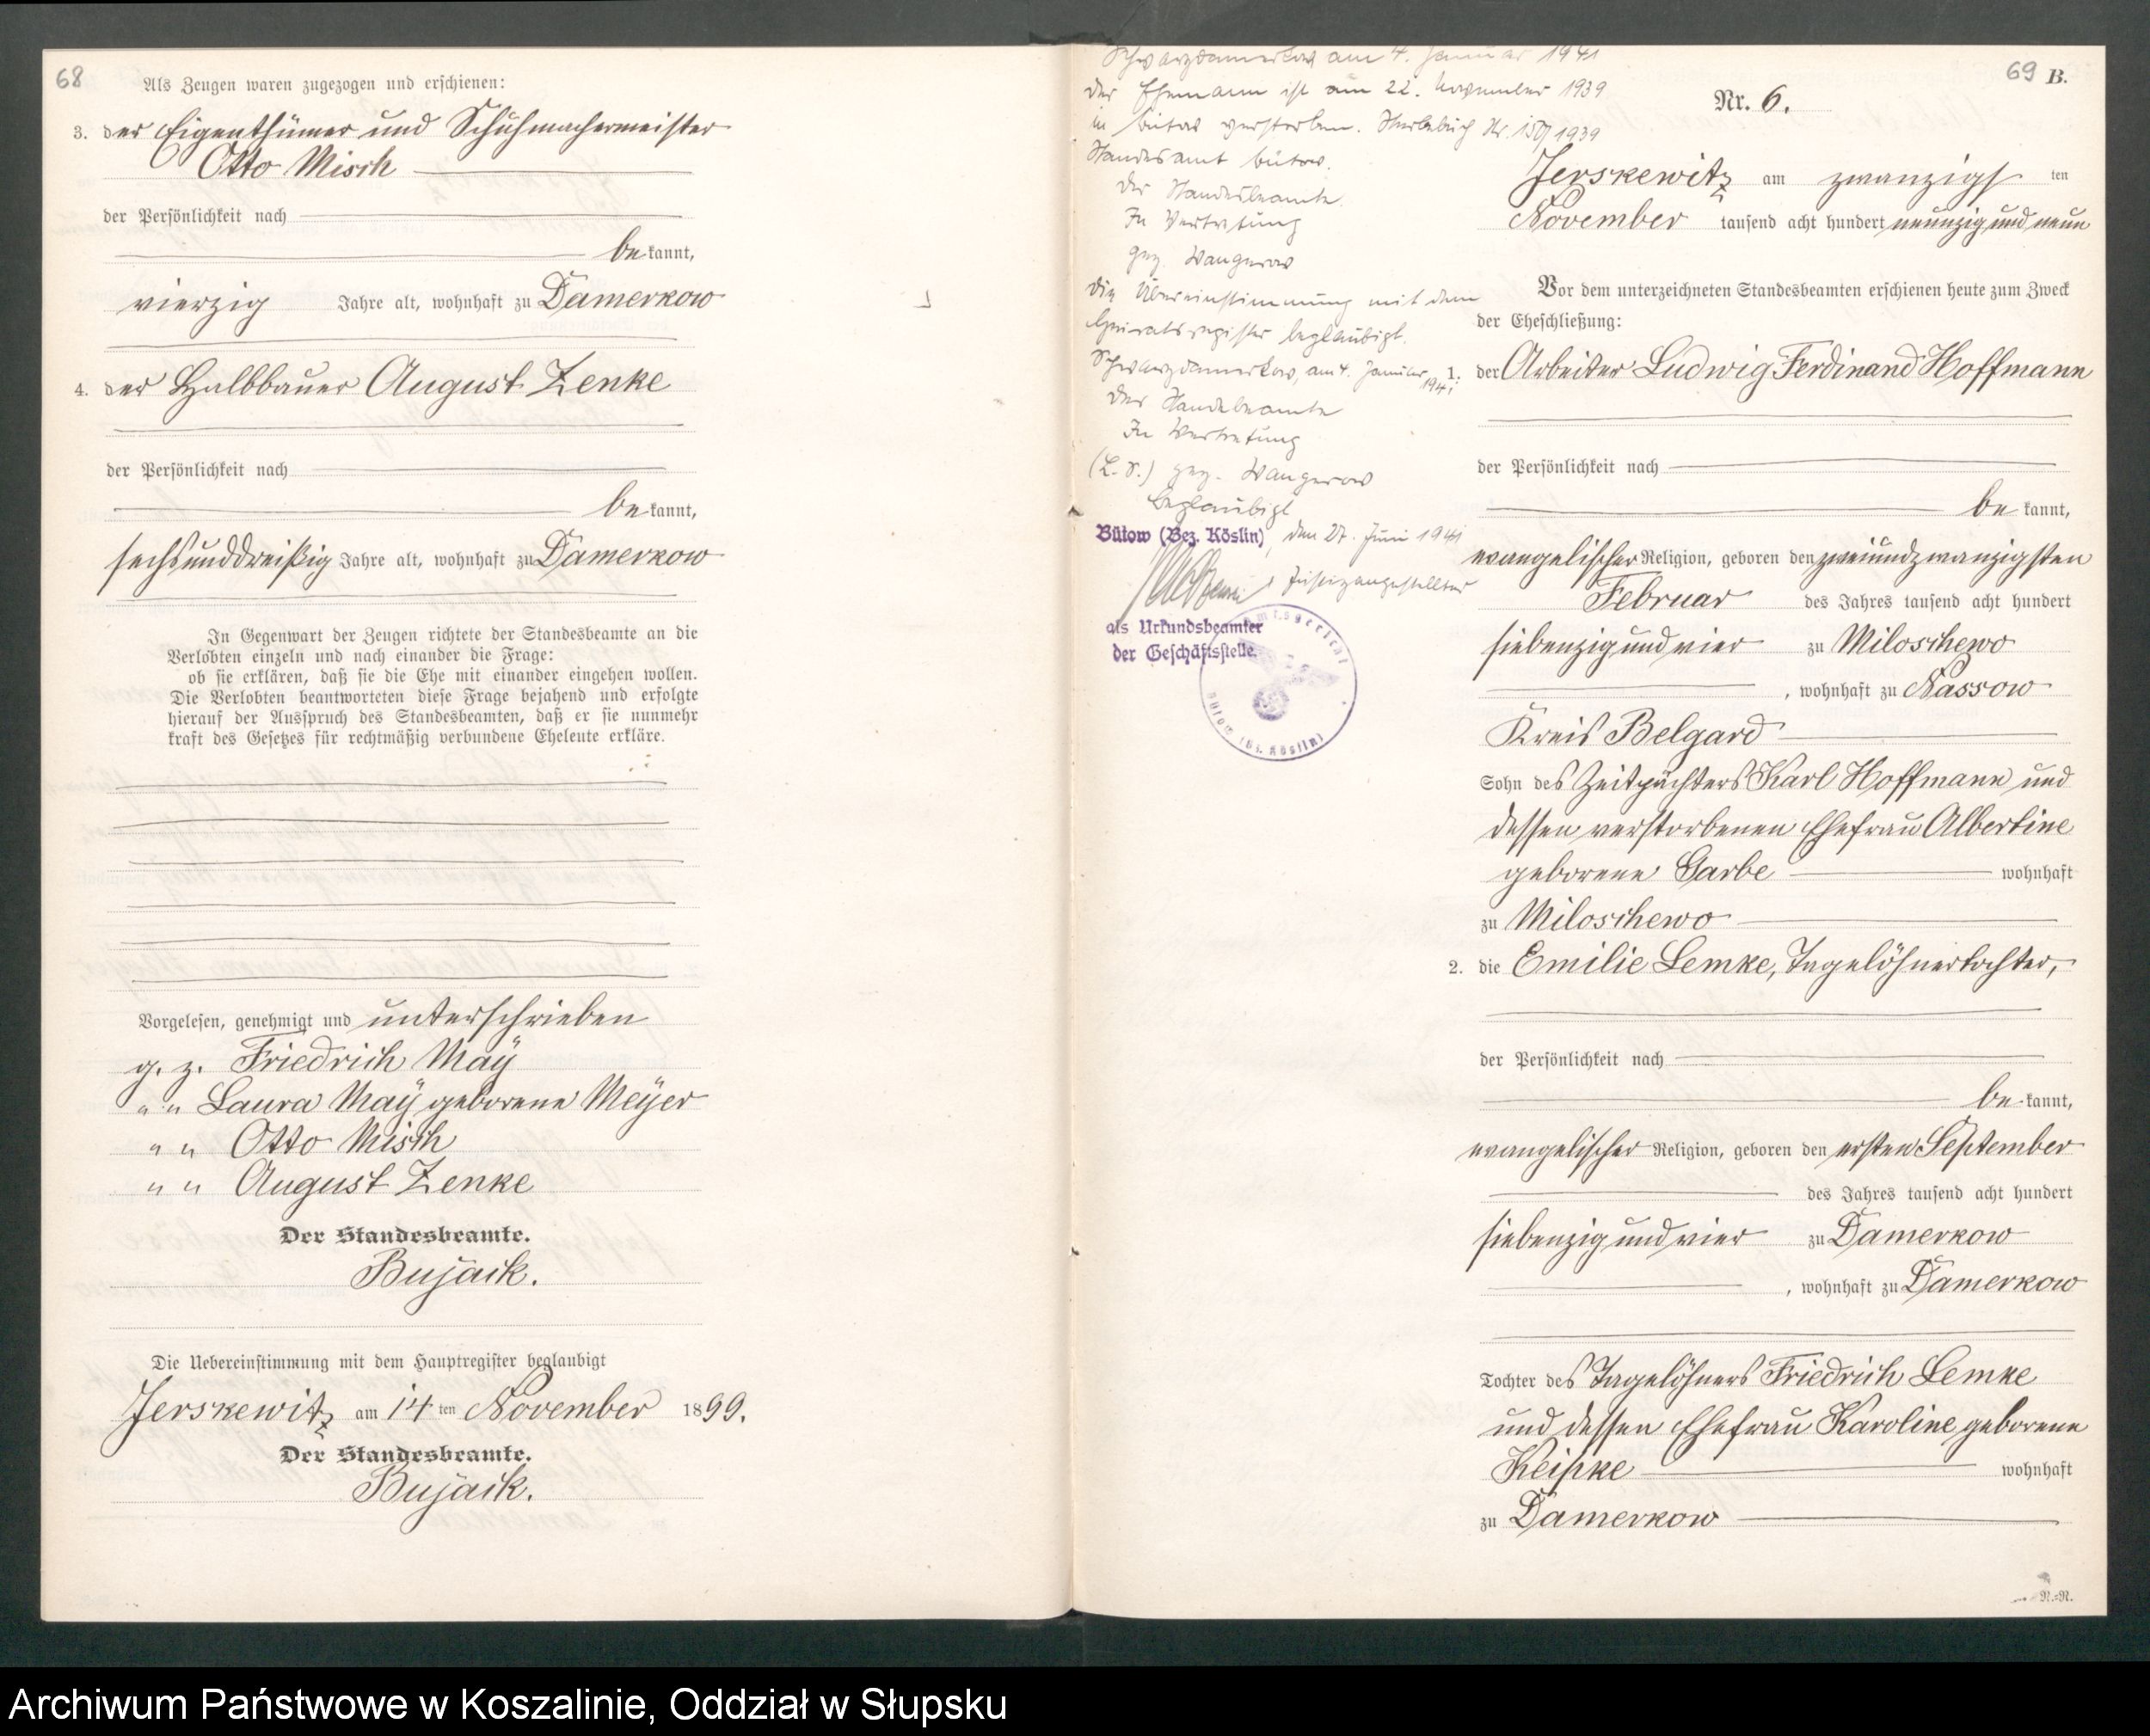 68
Als Zeugen waren zugezogen und erschienen:
3. der Eigenthümer und Schuhmachermeister
Otto Misch
der Persönlichkeit nach
bekannt,
vierzig Jahre alt, wohnhaft zu Damerkow
4. der Halbbauer August Zenke
der Persönlichkeit nach
bekannt,
sechsunddreißig Jahre alt, wohnhaft zu Damerkow
In Gegenwart der Zeugen richtete der Standesbeamte an die
Verlobten einzeln und nach einander die Frage:
ob sie erklären, daß sie die Ehe mit einander eingehen wollen.
Die Verlobten beantworteten diese Frage bejahend und erfolgte
hierauf der Ausspruch des Standesbeamten, daß er sie nunmehr
kraft des Gesetzes für rechtmäßig verbundene Eheleute erkläre.
Vorgelesen, genehmigt und unterschrieben
g. z. Friedrich Maÿ
" " Laura Maÿ geborene Meÿer
" " Otto Misch
" " August Zenke
Der Standesbeamte.
Bujack.
Die Uebereinstimmung mit dem Hauptregister beglaubigt
Jerskewitz am 14 ten November 1899.
Der Standesbeamte.
Bujack.
Schwarzdamerkow am 4. Januar 1941
Der Ehemann ist am 22. November 1939
in Bütow verstorben. Sterbebuch Nr. 1939
Standesamt Bütow.
Der Standesbeamte
In Vertretung
gez. Wangerow
Die Übereinstimmung mit dem
Heiratsregister beglaubigt.
Schwarzdamerkow, am 4. Januar 1941
Der Standesbeamte
In Vertretung
(L. S.) gez. Wangerow
Beglaubigt
Bütow (Bez. Köslin), den 27. Juni 1941
Justizangestellter
als Urkundsbeamter
der Geschäftsstelle.
Amtsgericht
Bütow (Bz. Köslin)
69 B.
Nr. 6.
Jerskewitz am zwanzigsten
November tausend acht hundert neunzig und neun
Vor dem unterzeichneten Standesbeamten erschienen heute zum Zweck
der Eheschließung:
1. der Arbeiter Ludwig Ferdinand Hoffmann
der Persönlichkeit nach
bekannt,
evangelischer Religion, geboren den zweiundzwanzigsten
Februar des Jahres tausend acht hundert
siebenzig und vier zu Miloschewo
, wohnhaft zu Nassow
Kreis Belgard
Sohn des Zeitpächters Karl Hoffmann und
dessen verstorbenen Ehefrau Albertine
geborene Garbe wohnhaft
zu Miloschewo
2. die Emilie Lemke, Tagelöhnertochter,
der Persönlichkeit nach
bekannt,
evangelischer Religion, geboren den ersten September
des Jahres tausend acht hundert
siebenzig und vier zu Damerkow
, wohnhaft zu Damerkow
Tochter des Tagelöhners Friedrich Lemke
und dessen Ehefrau Karoline geborene
Keipke wohnhaft
zu Damerkow
N.=N.
Archiwum Państwowe w Koszalinie, Oddział w Słupsku